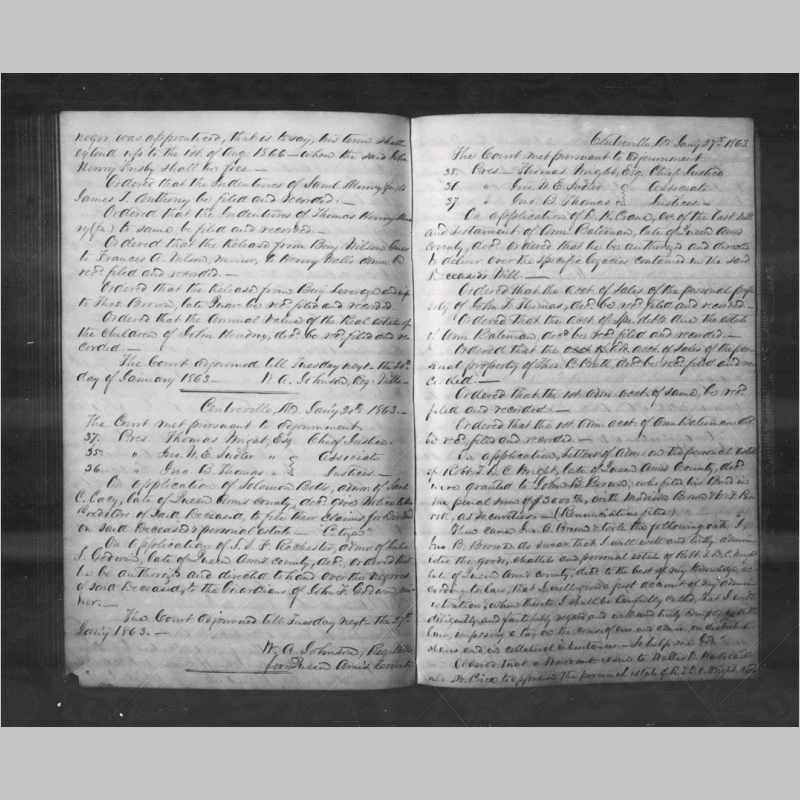 negro was apprenticed, that is to say, his term shall
extend up to the 1st of Aug 1866 – when the said John
Henry shall be free –
Ordered that the Indentures of Saml Henry to
James T. Anthony be filed and recorded. –
Ordered that the Indentures of Thomas Henry
to same be filed and recorded. –
Ordered that the Release from Benj. Wilson
to Francis A. Wilson, minor, & Henry Wells
recd filed and recorded. –
Ordered that the Release from Benj
to Thos. Brown, late be recd filed and recorded
Ordered that the Annual value of the Real estate of
the children of John Hendrix, decd. be recd filed and re
corded. –
The Court adjourned till Tuesday next – the 20th
day of January 1863. – W. A. Johnson, Reg. Wills –
Centreville, Md. Jan'y 20th 1863. –
The Court met pursuant to adjournment
37. Pres. Thomas Wright, Esq Chief Justice.
35. " Jno. W. E. Sudler " & Associate
36. " Jno. B. Thomas " & Justices –
On application of Solomon Betts, admr. of
C. late of Queen Ann's county, decd. give Notice to the
Creditors of said Deceased, to file their Claims,
on said Deceased's personal estate –
On application of J. Rochester, admr of
J. Godwin, late of Queen Ann's county, decd., ordered that
he be authorized and directed to hand over the negroes
of said Deceased, to the Guardian of John F. Godwin, mi
nor. –
The Court adjourned till Tuesday next – the 27th
Jan'y 1863. –
W. A. Johnson, Reg. Wills
for Queen Ann's County
Centreville, Md Jan'y 27th 1863
The Court met pursuant to adjournment
35. Pres – Thomas Wright, Esq Chief Justice
36. " Jno. W. E. Sudler & Associate
37 " Jno. B. Thomas " & Justices –
On application of exr. of the last will
and testament of Ann Bateman, late of Queen Anns
county, decd. ordered that he be authorized and directed
to deliver over the specific legacies contained in the said
Deceased's Will. –
Ordered that the acct. of sales of the personal prop
erty of John F. Thomas, decd. be recd filed and recorded –
Ordered that the acct. of Sper. debts due the estate
of Ann Bateman decd be recd filed and recorded –
Ordered that the acct. of sales of the per
sonal property of decd. be recd filed and re
corded. –
Ordered that the 1st admn. acct. of same, be recd
filed and recorded. –
Ordered that the 1st admn acct. of Ann Bateman decd
be recd filed and recorded. –
On application, letters of Admn. on the personal estate
of Robert W. C. Wright, late of Queen Anns County, decd
were granted to John B. Brown, who filed his Bond in
the penal sum of $3000, with Madison Brown &
as securities. – (Renunciation filed)
Then came Jno. B. Brown & took the following oath "I,
Jno B. Brown do swear that I will well and truly admin
ister the goods, chattels and personal estate of Robt. W. C. Wright
late of Queen Ann's county, decd. to the best of my knowledge, ac
cording to Law, that I will give a just account of my admin
istration, when thereto I shall be lawfully called, that I will
diligently and faithfully regard and well and truly comply with the
Law, imposing a tax on the commissions and on distributive
shares and on collateral inheritances – So help me God."
Ordered that a Warrant issue to Walter
and Price to appraise the personal estate of R. W. C. Wright